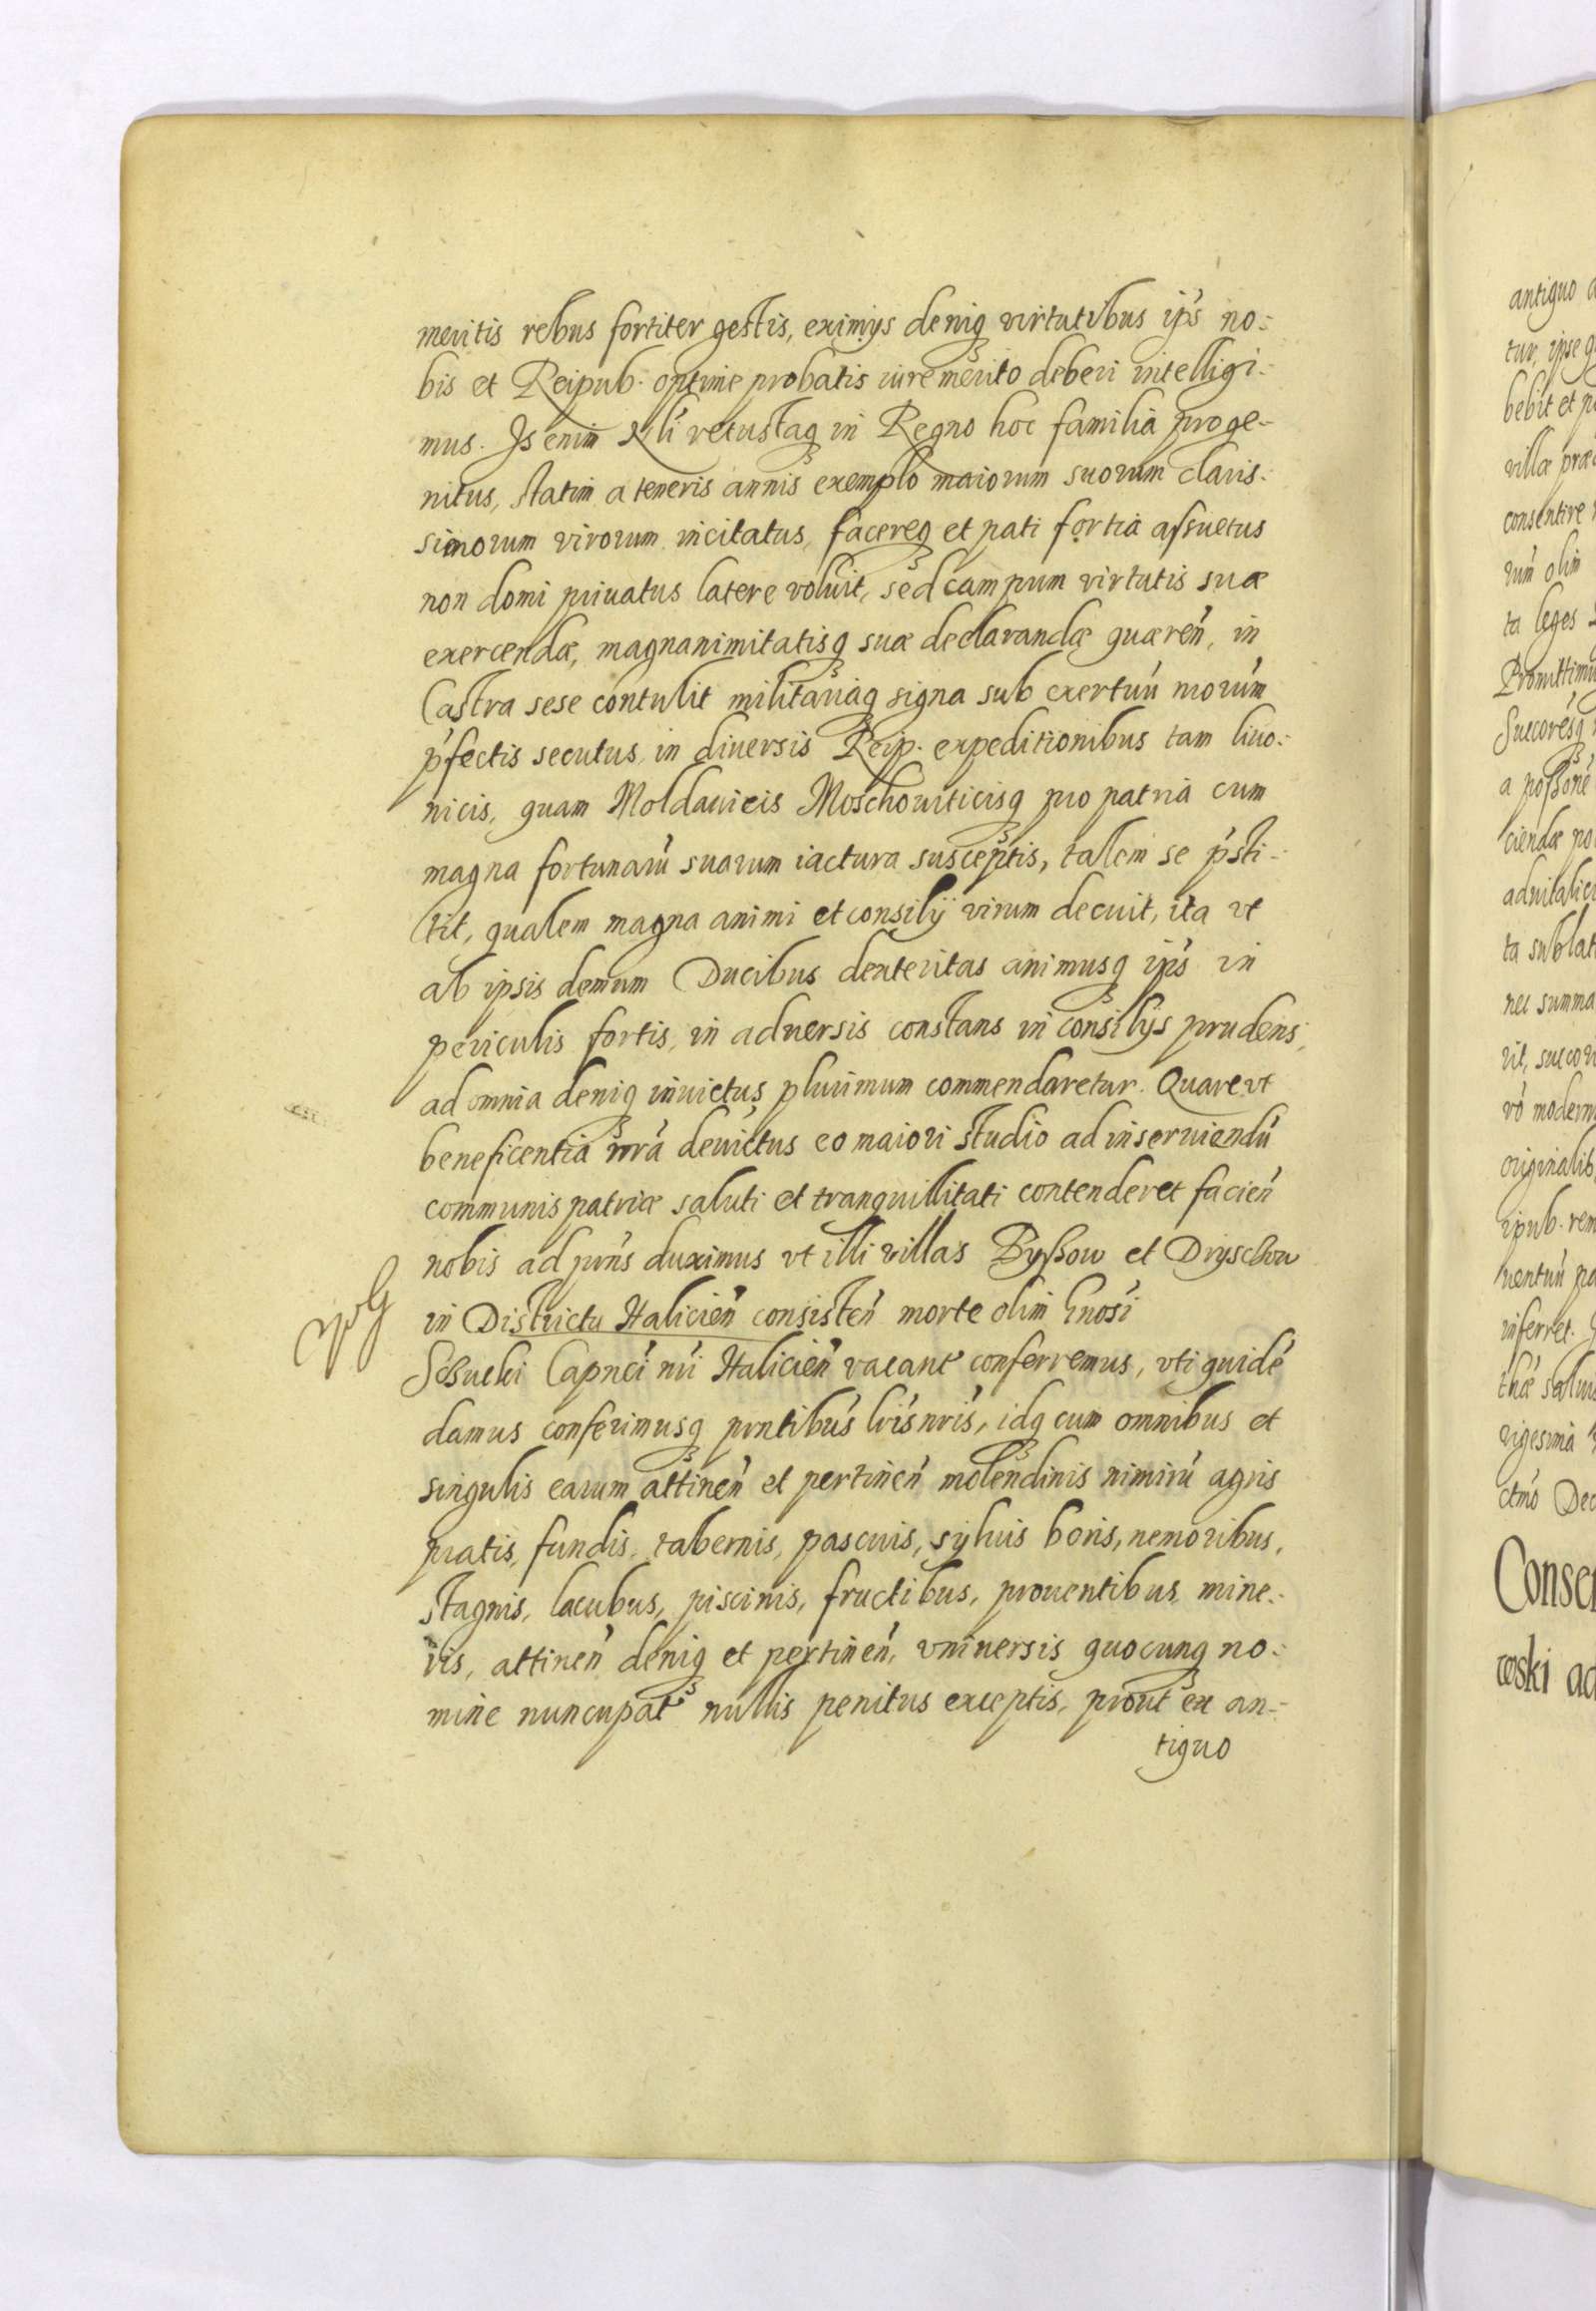 meritis rebus fortiter gestis, eximijs deniq virtutibus ips no-
bis et Reipub. optime probatis iure merito deberi intelligi-
mus. Is enim Nli vetustaq in Regno hoc familia proge-
nitus, statim a teneris annis exemplo maiorum suorum claris-
simorum virorum incitatus, facereq et pati fortia assuetus
non domi priuatus latere voluit, sed campum virtutis suæ
exercendæ, magnanimitatisq suæ declarandæ quæren, in
Castra sese contulit militariaq signa sub exertuu nrorum
pfectis secutus, in diuersis Reip. expeditionibus tam liuo-
nicis, quam Moldauicis Moschouiticisq pro patria cum
magna fortunaru suarum iactura susceptis, talem se psti-
tit, qualem magna animi et consilij virum decuit, ita vt
ab ipsis demum Ducibus dexteritas animusq ips in
periculis fortis, in aduersis constans in consilijs prudens,
ad omnia deniq inuictus plurimum commendaretur. Quare vt
beneficentia nra deuictus eo maiori studio ad inseruiendu
communis patriæ saluti et tranquillitati contenderet facien
nobis ad prns duximus vt illi villas Byssow et Dryschow
in Districtu Halicien consisten morte olim Gnosi
Capnei Halicien vacant conferremus, vti quide
damus conferimusq prntibus lris nris, idq cum omnibus et
singulis earum attinen et pertinen molendinis nimiru agris
pratis, fundis, tabernis, pascuis, syluis boris, nemoribus,
stagnis, lacubus, piscinis, fructibus, prouentibus, mine-
ris, attinen deniq et pertinen, vniuersis quocunq no-
mine nuncupat nullis penitus exceptis, prout ex an-
tiquo
antiquo
tur, ipse
bebit et
villæ
consentire
rum olim
ta leges
Promittimus
a possone
ciendæ
ta sublat
nec summa
vro
originalib
ipub. rem
inferret.
vigesima
Consen